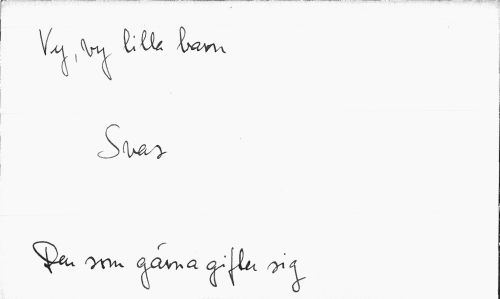 Vy, vy lilla barn
Svar
Den som gärna gifter sig